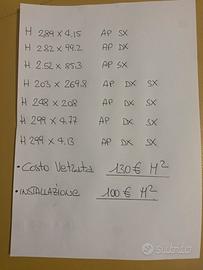 H 289 x 4.15 AP SX
H 282 x 99.2 AP DX
H 2.52 x 85.3 AP SX
H 203 x 269.8 AP DX SX
H 248 x 208 AP DX SX
H 299 x 4.77 AP DX SX
H 299 x 4.13 AP DX SX
• Costo Vetrata 130 € M²
• INSTALLAZIONE 100 € M²
subito